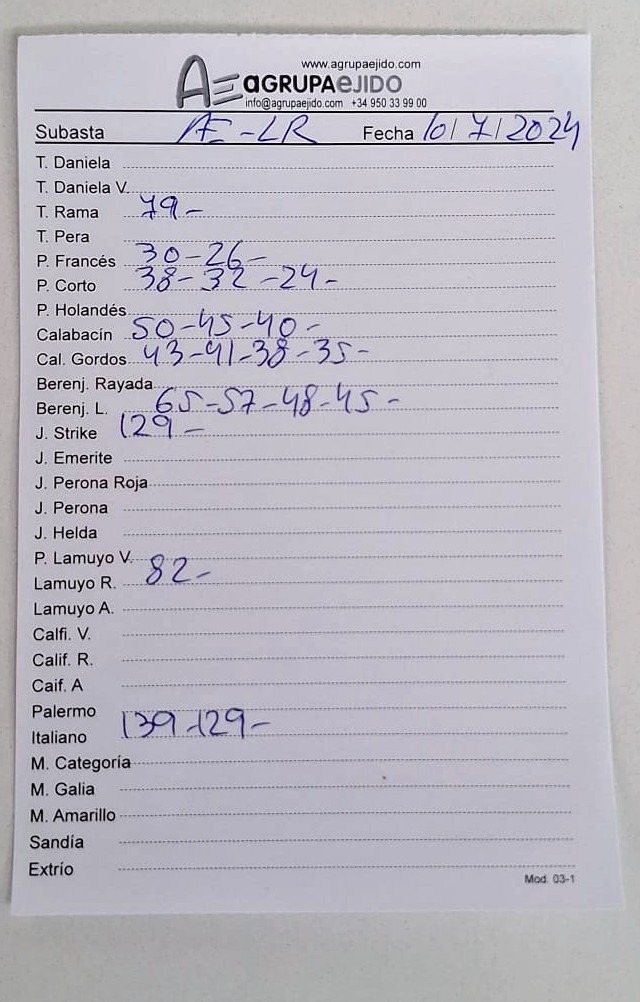 www.agrupaejido.com
AE AGRUPAEJIDO
info@agrupaejido.com +34 950 33 99 00
Subasta AE-LR Fecha 10/7/2024
T. Daniela
T. Daniela V.
T. Rama 79-
T. Pera
P. Francés 30-26-
P. Corto 38-32-24-
P. Holandés
Calabacín 50-45-40-
Cal. Gordos 43-41-38-35-
Berenj. Rayada
Berenj. L. 65-57-48-45-
J. Strike 129-
J. Emerite
J. Perona Roja
J. Perona
J. Helda
P. Lamuyo V.
Lamuyo R. 82-
Lamuyo A.
Calfi. V.
Calif. R.
Caif. A
Palermo
Italiano 139-129-
M. Categoría
M. Galia
M. Amarillo
Sandía
Extrío
Mod. 03-1